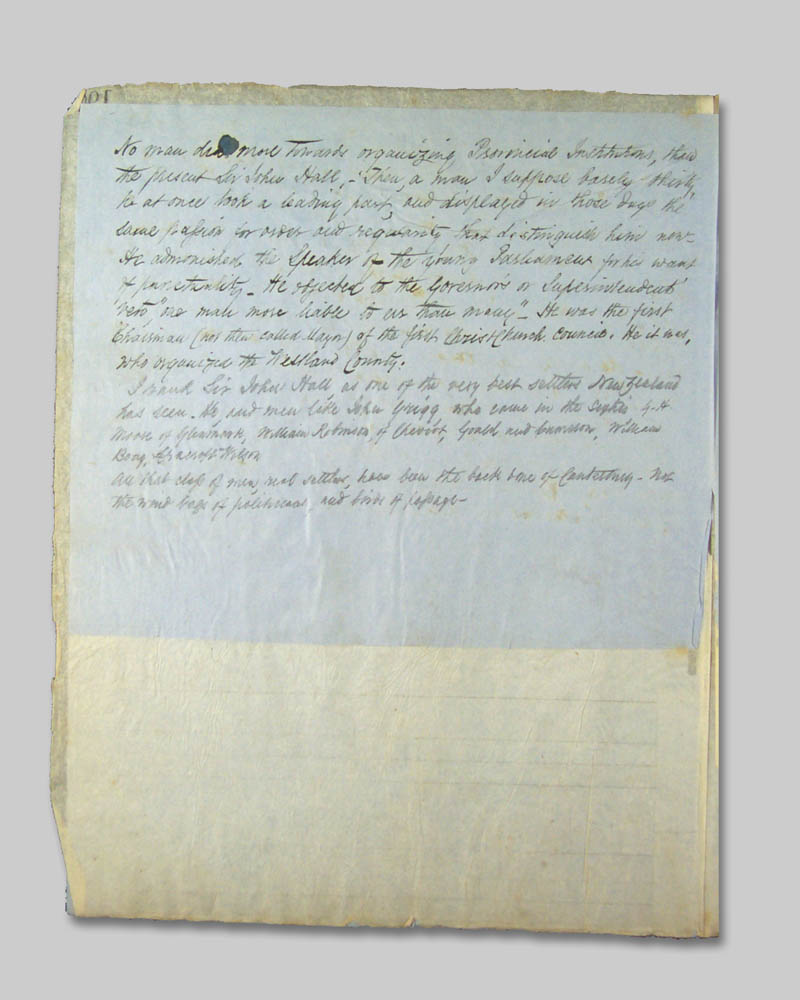 No man did more towards organizing Provincial Institutions, than
the present Sir John Hall, - Then, a man I suppose barely thirty,
he at once took a leading part, and displayed in those days the
same passion for order and regularity that distinguish him now -
He admonished the Speaker of the young Parliament for his want
of punctuality - He objected to the Governor's or Superintendent's
veto, "one man more liable to err than many" - He was the first
Chairman (not then called Mayor) of the first ChristChurch Council. He it was,
who organized the Westland County.
I rank Sir John Hall as one of the very best settlers New Zealand
has seen. He and men like John Grigg who came in the Sixties G-H
Moore of Glenmark, William Robinson of Cheviot, Gould and Cameron, William
Boag, Cracroft Wilson
All that class of men, real settlers, have been the back bone of Canterbury - Not
the wind bags of politicians, and birds of passage -